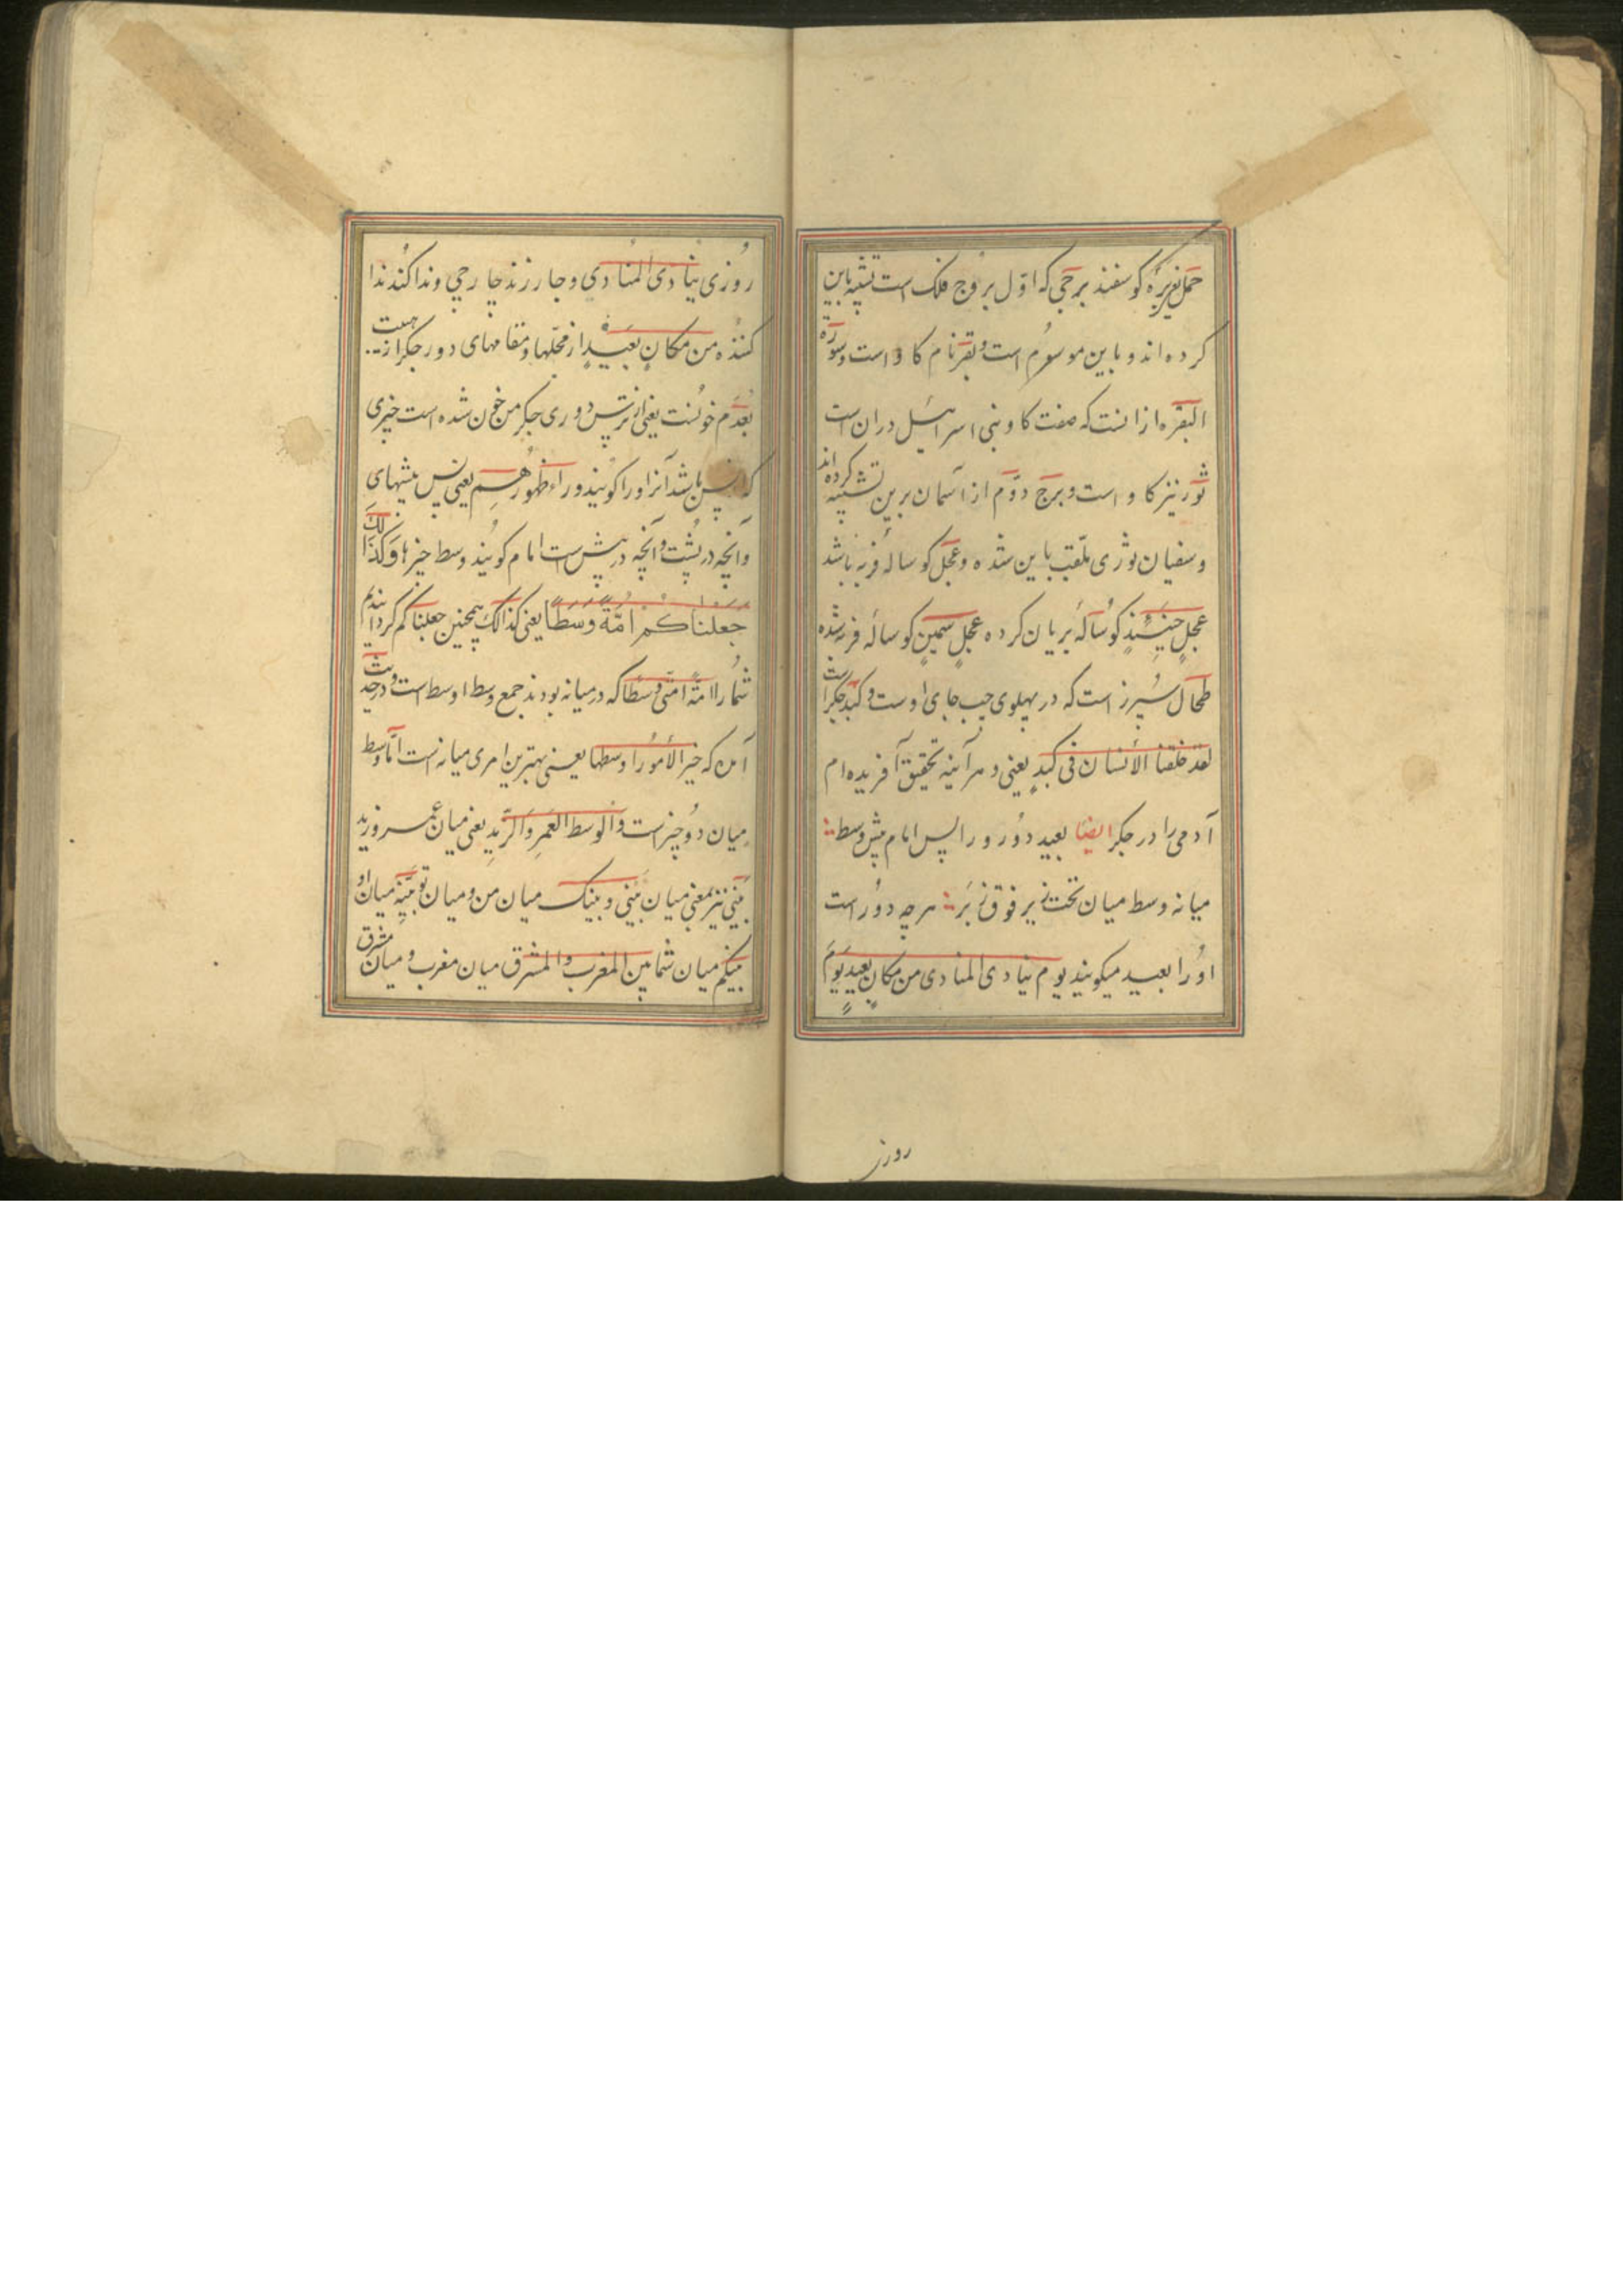 حمل نیز برهٔ کوسفند برجی که اوّل بروج فلک است تشبیه باین
کرده‌اند و باین موسوم است و بقر نام کاو است و سورة
البقره از انست که صفت کاو بنی اسرائیل در ان است
ثور نیز کاو است و برج دوّم از اسمان برین تشبیه کرده اند
و سفیان ثوری ملّقب باین شده و عجل کوسالهٔ فربه باشد
عجلٍ حنیذٍ کوسالهٔ بریان کرده عجلٍ سمینٍ کوسالهٔ فربه شده
طحال سُپرز است که در پهلوی چپ جای اوست و کبد جکر است
لقد خلقنا الأنسان فی کبدٍ یعنی و هر آینه تحقیق آفریده‌ام
آدمی را در جکر ایضا بعید دور و را پس امام پیش وسط
میانه وسط میان تحت زیر فوق زبَر هر چه دور است
اورا بعید میکویند یوم ینادی المنادی من مکانٍ بعیدٍ یوم
روزی
روزی ینادی المنادی و جار زند جارچی و ندا کند ندا
کننده من مکانٍ بعیدٍ از محلّها و مقامهای دور جکر از هیبت
بُعدم خونست یعنی از ترس دوری جکر من خون شده است چیزی
که پس باشد آنرا ورا کویند وراء ظهورهم یعنی پس پشیهای
و آنچه در پُشت و آنچه در پیش است امام کویند وسط چیزها و کذالک
جعلناکم امّةً وسَطًا یعنی کذالک همچنین جعلناکم کردانیدم
شمُا را امّةً امّتی وسطًا که در میانه بودند جمع وسط اوسط است و در حدیث
آمده که خیر الأمور اوسطها یعنی بهترین امری میانه است امّا وسط
میان دو چیز است و الوسط العَمرِ و الزّیدِ یعنی میان عمر و زید
بینی نیز بمعنی میان بینی و بینک میان من و میان تو بینِه میان او
بینکم میان شما بین المغرب و المشرق میان مغرب و میان مشرق